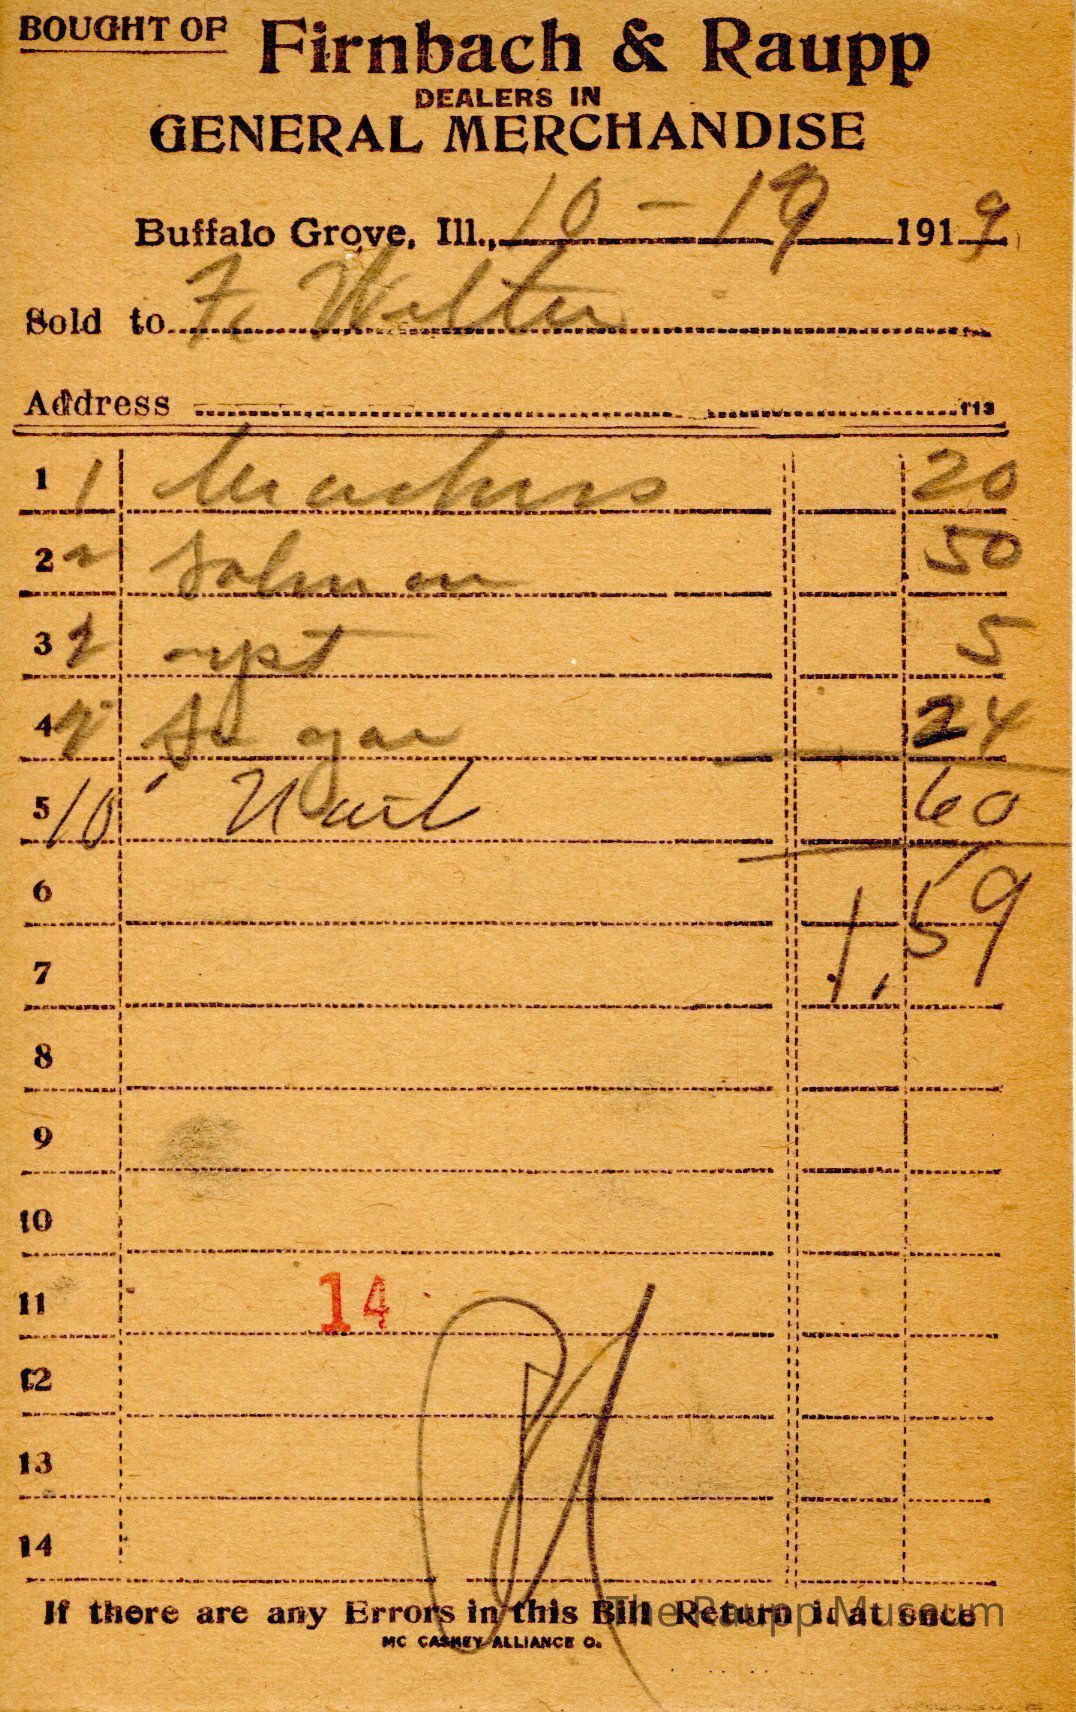 BOUGHT OF Firnbach & Raupp
DEALERS IN
GENERAL MERCHANDISE
Buffalo Grove, Ill., 10-19 1919
Sold to F. Welter
Address 113
1 1 20
2 2 Salmon 50
3 yst 5
4 Sugar 24
5 10 Nail 60
6 1.59
7
8
9
10
11 14
12
13
14
If there are any Errors in this Bill Return it at once
MC CASKEY ALLIANCE O.
The Raupp Museum